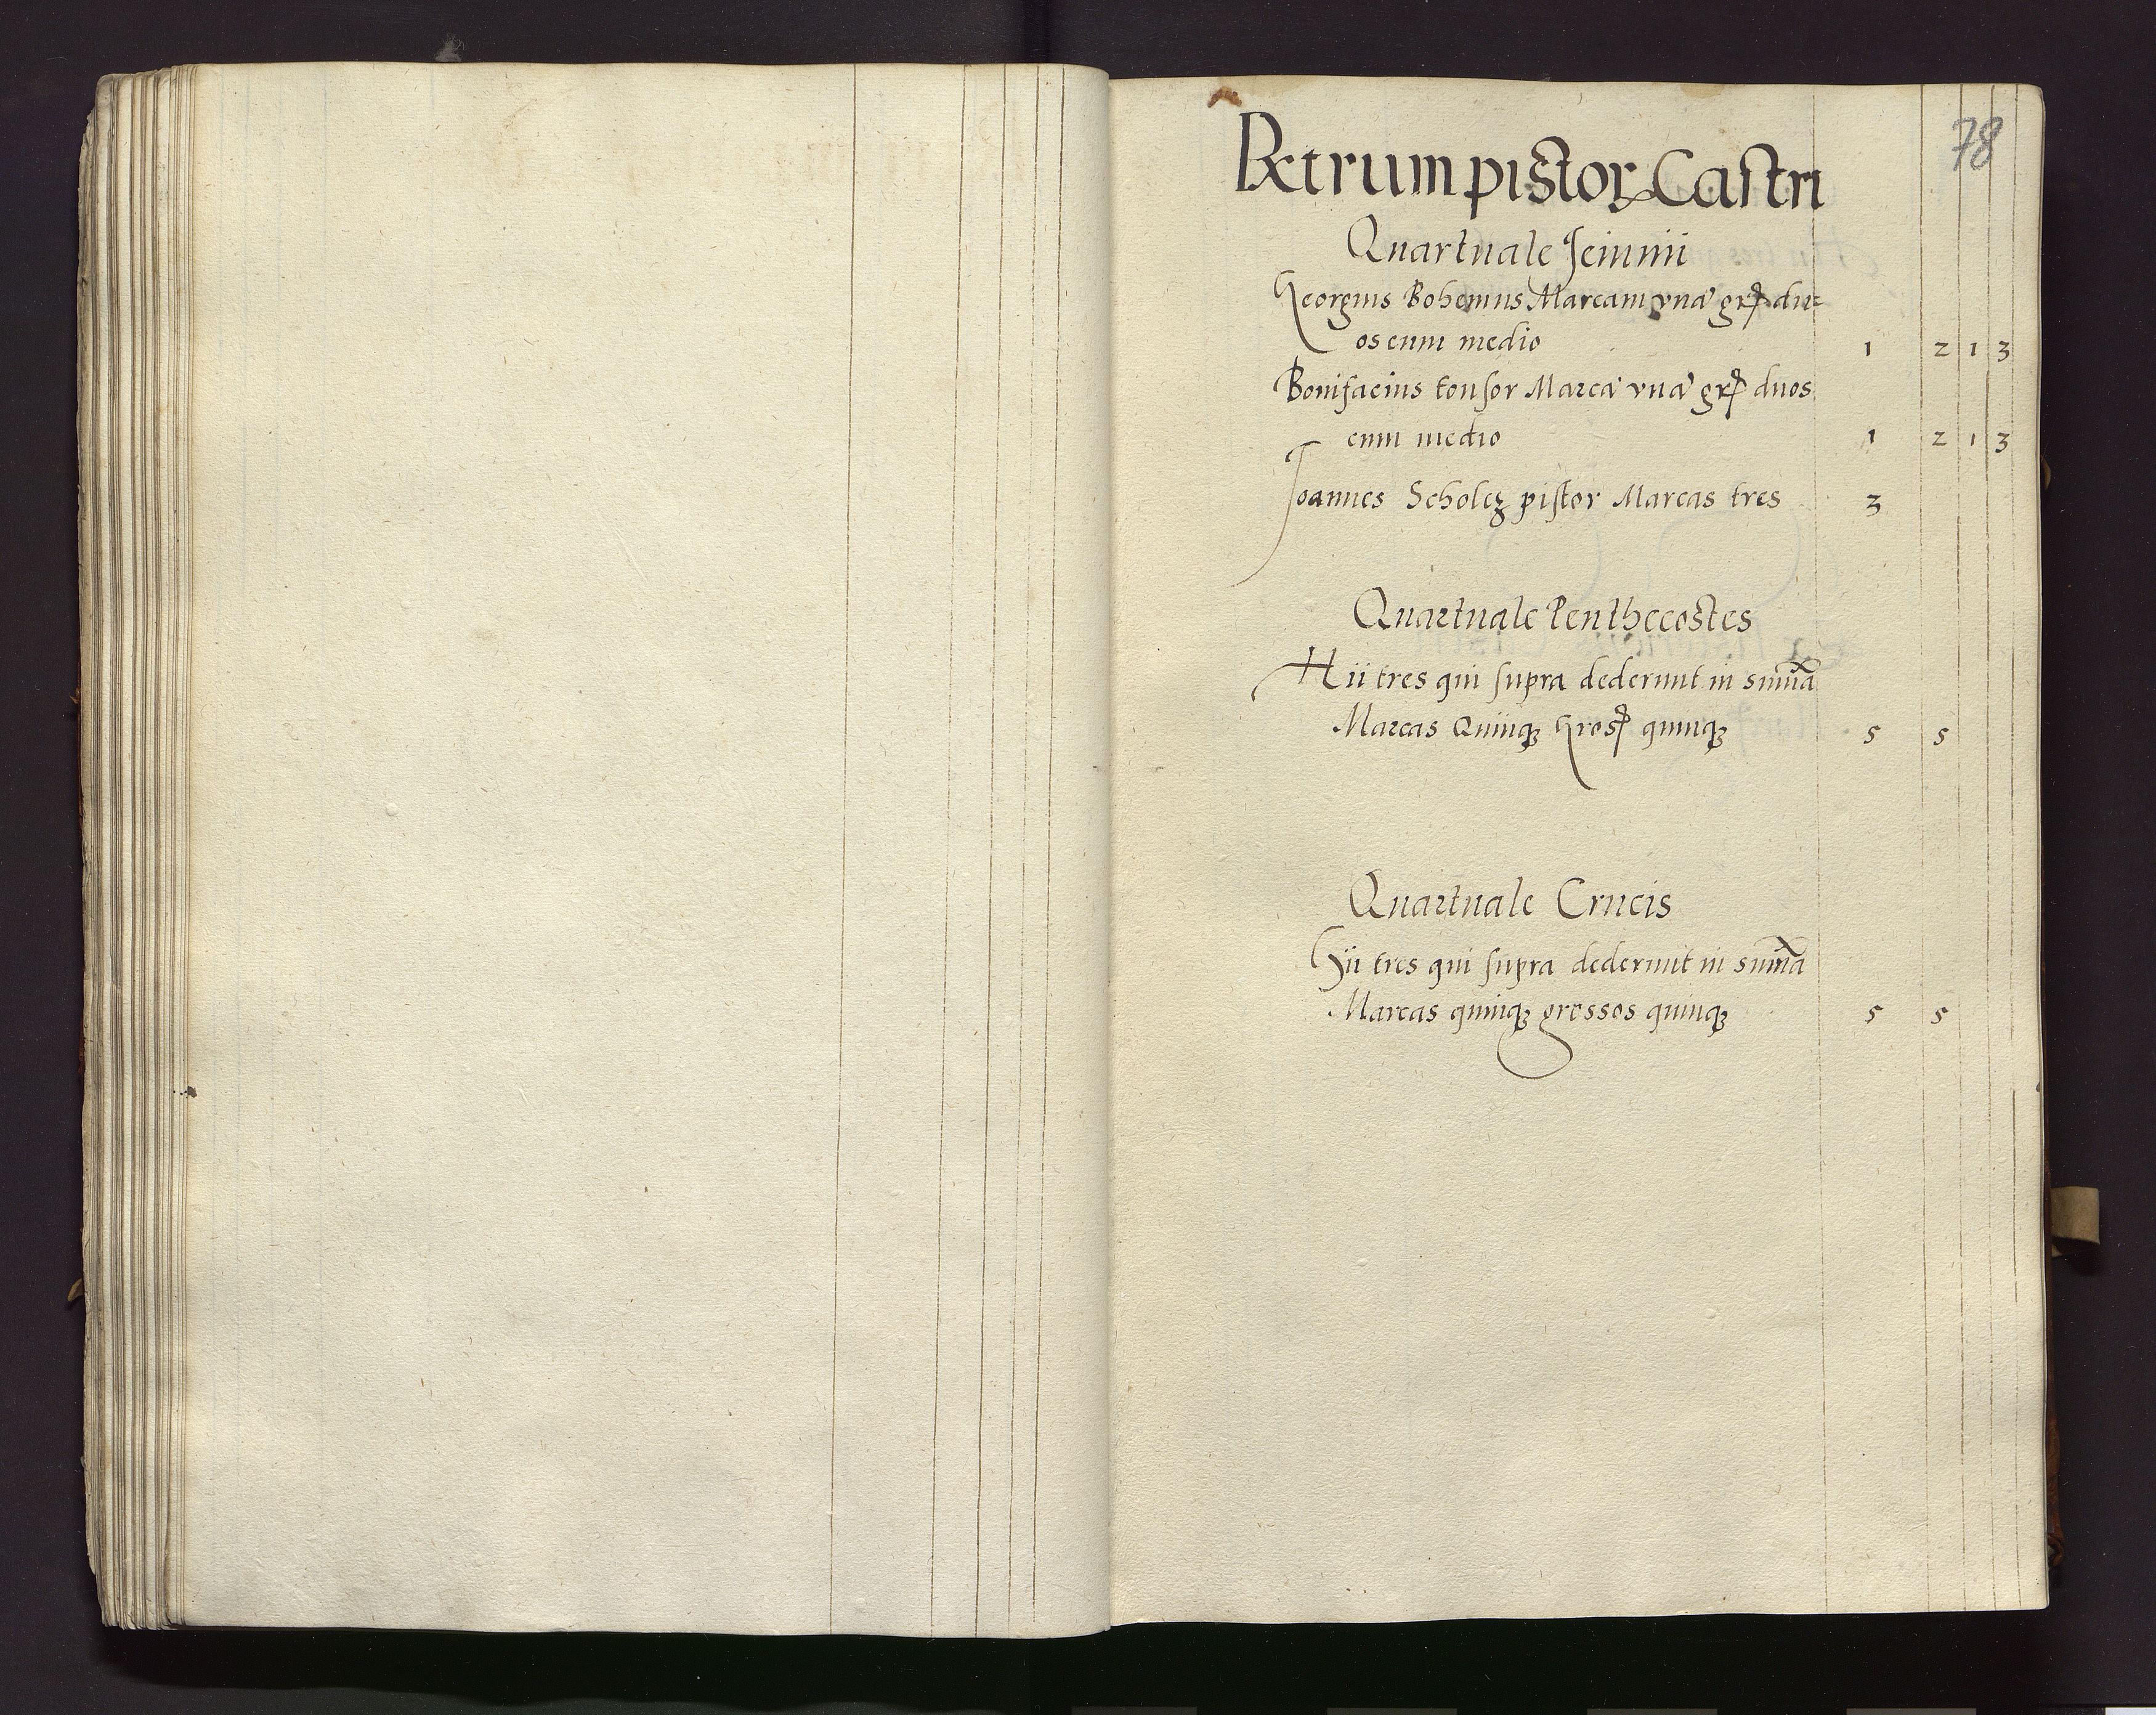 78
Petrum pistor Castri
Quartuale Jeiunii
Georgius Bohemus Marcam vnã grꝭ du=
os cum medio 1 2 1 3
Bonifacius tonsor Marcã vnã grꝭ duos
cum medio 1 2 1 3
Joannes Scholcz pistor Marcas tres 3
Quartuale Penthecostes
Hii tres qui supra dederunt in sum̃ã
Marcas Quinqꝫ Grosꝭ quinqꝫ 5 5
Quartuale Crucis
Hii tres qui supra dederunt in sum̃ã
Marcas quinqꝫ grossos quinqꝫ 5 5